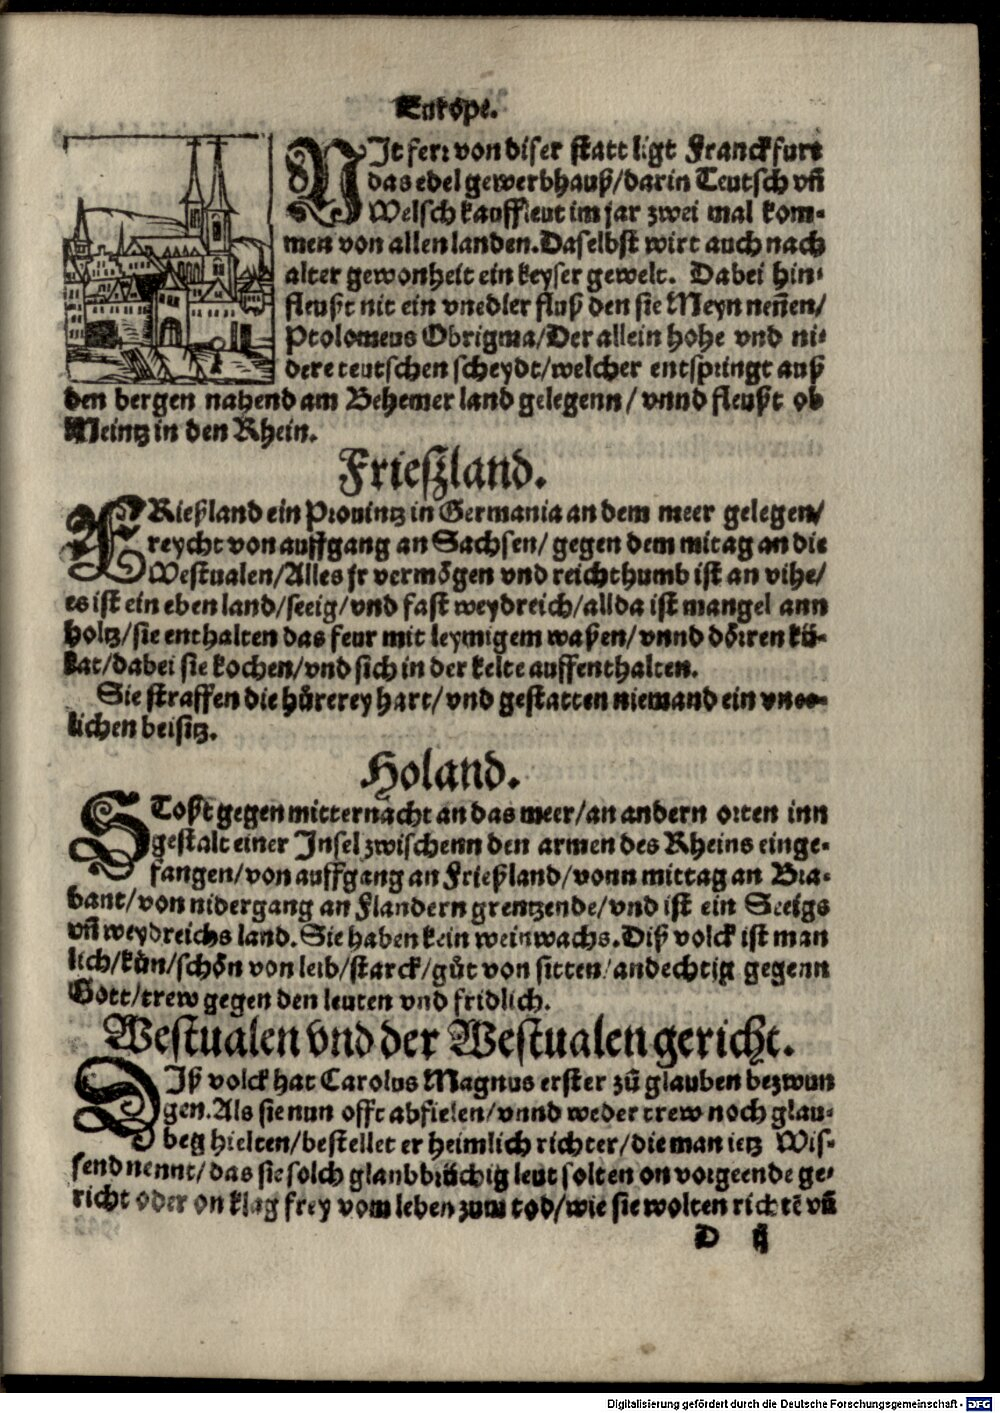 Europe.
NIt ferr von diser statt ligt Franckfurt
das edel gewerbhauß/darin Teutsch vñ
Welsch kauffleut im jar zwei mal kom-
men von allen landen. Daselbst wirt auch nach
alter gewonheit ein keyser gewelt. Dabei hin-
fleußt nit ein vnedler fluß den sie Meyn neñen/
Ptolomeus Obrigma/Der allein hohe vnd ni-
dere teutschen scheydt/welcher entspringt auß
den bergen nahend am Behemer land gelegenn/ vnnd fleußt ob
Meintz in den Rhein.
Frieszland.
FRießland ein Prouintz in Germania an dem meer gelegen/
reycht von auffgang an Sachsen/ gegen dem mitag an die
Westualen/Alles jr vermögen vnd reichthumb ist an vihe/
es ist ein eben land/seeig/vnd fast weydreich/allda ist mangel ann
holtz/sie enthalten das feur mit leymigem waßen/vnnd dörren kü-
kat/dabei sie kochen/vnd sich in der kelte auffenthalten.
Sie straffen die hůrerey hart/ vnd gestatten niemand ein vnee-
lichen beisitz.
Holand.
SToßt gegen mitternacht an das meer/an andern orten inn
gestalt einer Insel zwischenn den armen des Rheins einge-
fangen/von auffgang an Frießland/vonn mittag an Bra-
bant/von nidergang an Flandern grentzende/vnd ist ein Seeigs
vñ weydreichs land. Sie haben kein weinwachs. Diß volck ist man
lich/kün/schön von leib/starck/gůt von sitten/andechtig gegenn
Gott/trew gegen den leuten vnd fridlich.
Westualen vnd der Westualen gericht.
DIß volck hat Carolus Magnus erster zů glauben bezwun
gen. Als sie nun offt abfielen/vnnd weder trew noch glau-
beg hielten/bestellet er heimlich richter/die man ietz Wis-
send nennt/das sie solch glaubbrüchig leut solten on vorgeende ge-
richt oder on klag frey vom leben zum tod/wie sie wolten richtē vñ
D ij
Digitalisierung gefördert durch die Deutsche Forschungsgemeinschaft - DFG